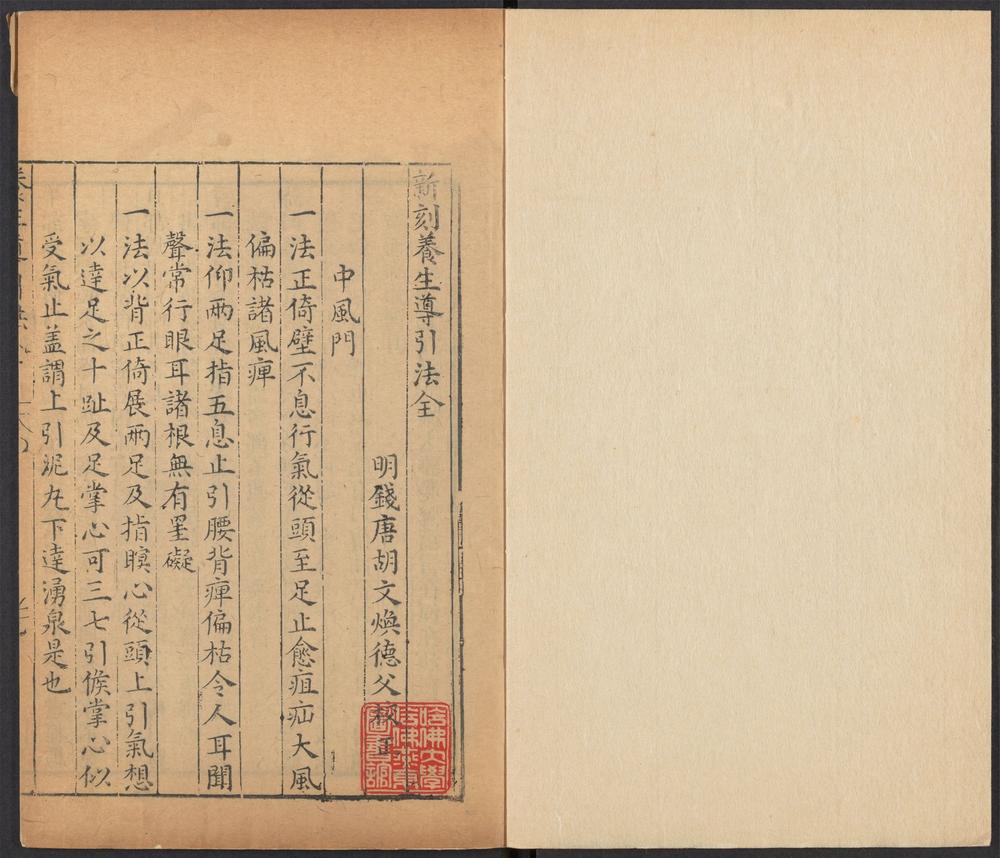 新刻養生導引法全
明錢唐胡文煥德父校正
中風門
一法正倚壁不息行氣從頭至足止愈疽疝大風
偏枯諸風痺
一法仰兩足指五息止引腰背痺偏枯令人耳聞
聲常行眼耳諸根無有罣礙
一法以背正倚展兩足及指瞑心從頭上引氣想
以達足之十趾及足掌心可三七引候掌心似
受氣止盖謂上引泥丸下達湧泉是也
哈佛大學
哈佛燕京
圖書館